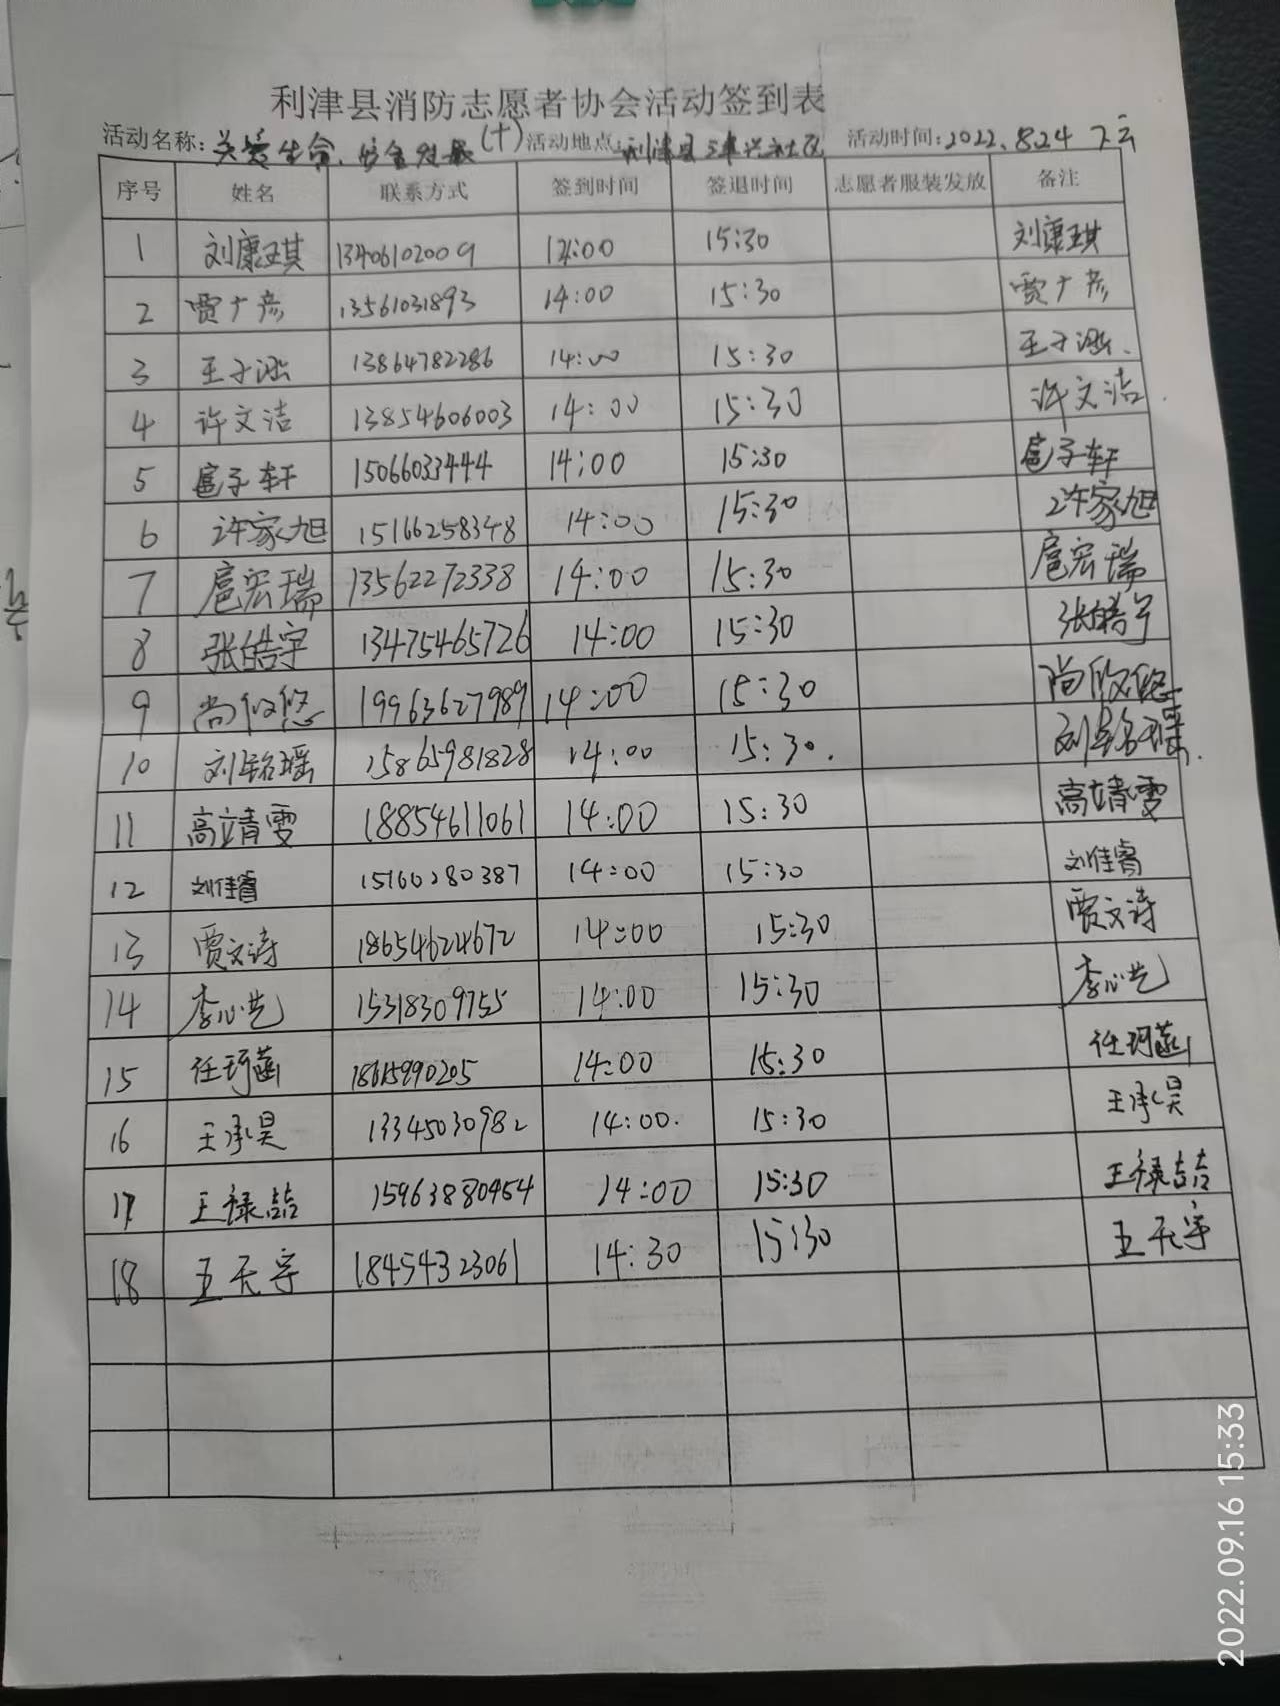 利津县消防志愿者协会活动签到表
活动名称:关爱生命、安全发展(十)活动地点:利津县津兴社区 活动时间:2022.8.24
序号 姓名 联系方式 签到时间 签退时间 志愿者服装发放 备注
1 刘康琪 13406102009 14:00 15:30 刘康琪
2 贾广彦 13561031893 14:00 15:30 贾广彦
3 王子涵 13864782286 14:00 15:30 王子涵
4 许文洁 13854606003 14:00 15:30 许文洁
5 扈子轩 15066033444 14:00 15:30 扈子轩
6 许家旭 15166258348 14:00 15:30 许家旭
7 扈宏瑞 13562272338 14:00 15:30 扈宏瑞
8 张皓宇 13475465726 14:00 15:30 张皓宇
9 19963627989 14:00 15:30
10 刘铭瑶 15865981828 14:00 15:30. 刘铭瑶
11 高靖雯 18854611061 14:00 15:30 高靖雯
12 刘佳睿 15160280387 14:00 15:30 刘佳睿
13 贾文诗 18654624672 14:00 15:30 贾文诗
14 李心艺 15318309755 14:00 15:30 李心艺
15 任珂菡 18615990205 14:00 15:30 任珂菡
16 王承昊 13345030982 14:00. 15:30 王承昊
17 王禄喆 15963880454 14:00 15:30 王禄喆
18 王天宇 18454323061 14:30 15:30 王天宇
2022.09.16 15:33